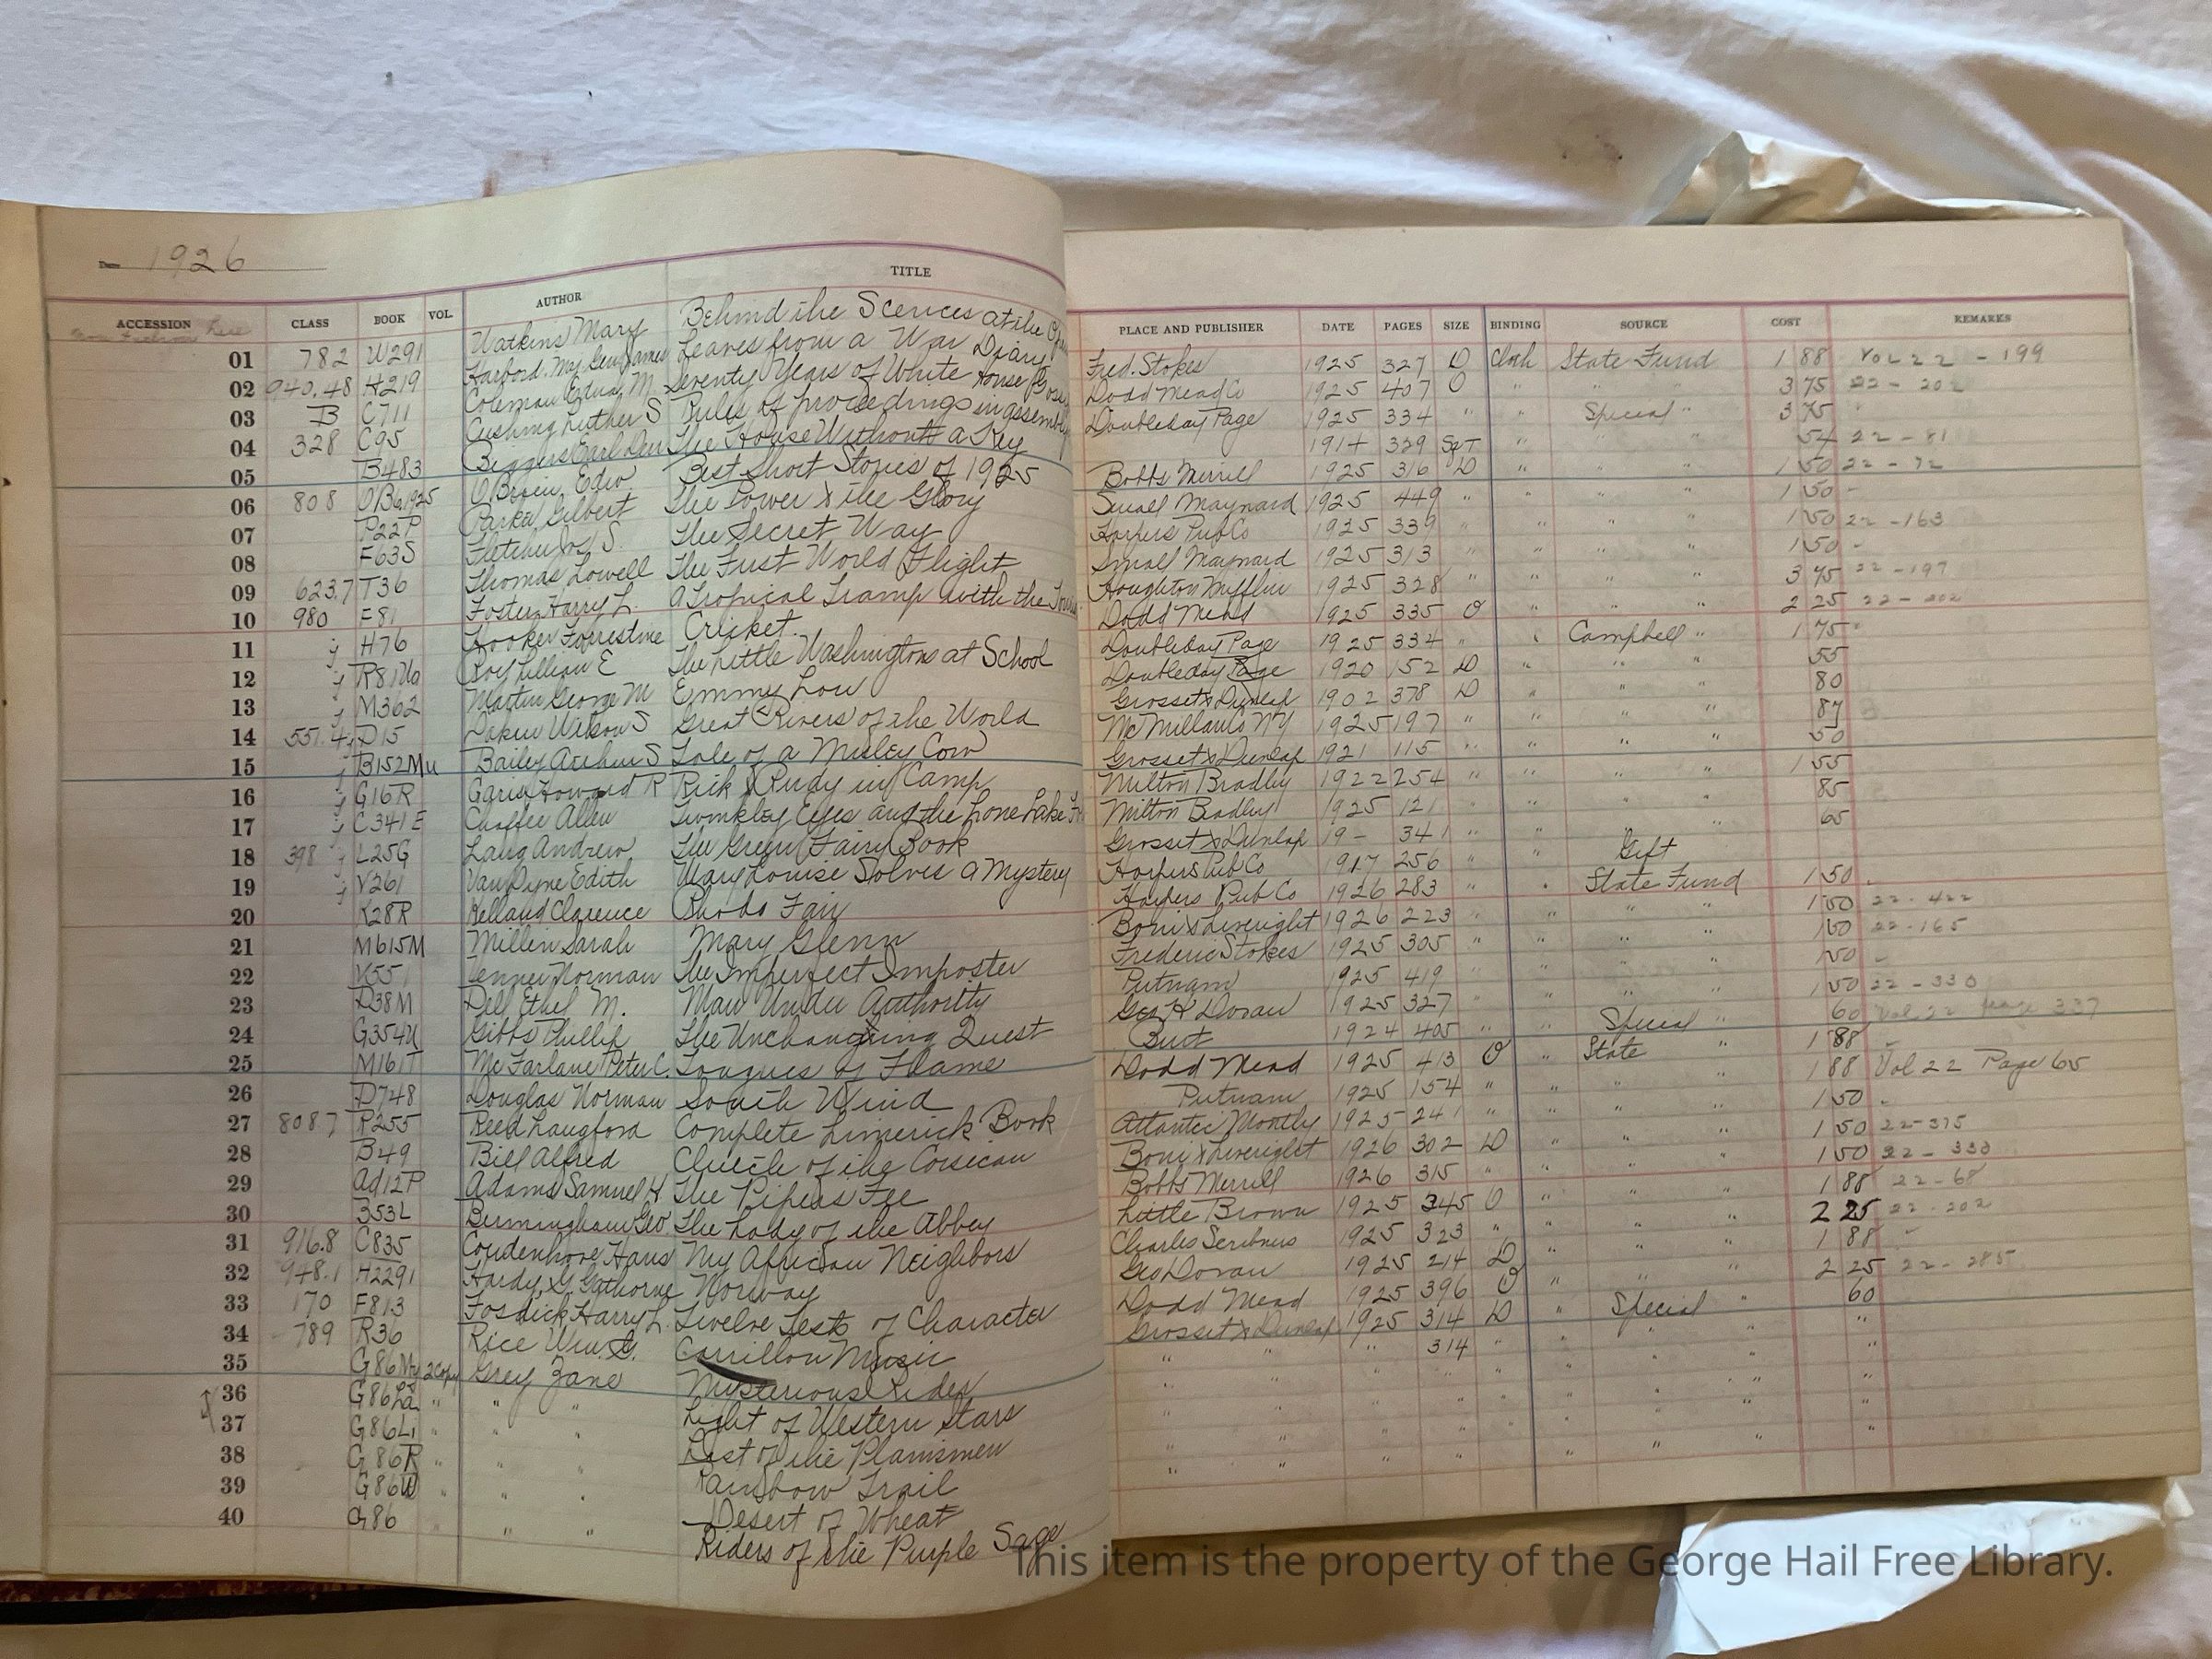 Date 1926
ACCESSION CLASS BOOK VOL. AUTHOR TITLE PLACE AND PUBLISHER DATE PAGES SIZE BINDING SOURCE COST REMARKS
01 782 W291 Watkins Mary Behind the Scences at the Fred. Stokes 1925 327 D Cloth State Fund 1 88 Vol 22 - 199
02 940.48 H219 Harbord. Maj Gen James Leaves from a War Diary Dodd Mead Co 1925 407 O " " " 3 75 22 - 202
03 B C711 Coleman Edna. M. Seventy Years of White House Doubleday Page 1925 334 " " Special " 3 75
04 328 C95 Cushing Luther S Rules of proceedings in assembly 1914 329 " " " 54 22 - 81
05 B483 Biggers Earl Derr The House Without a Key Bobbs Merrill 1925 316 D " " " 1 50 22 - 72
06 808 OB61925 O'Brien, Edw. Best Short Stories of 1925 Small Maynard 1925 449 " " " " 1 50 -
07 P22P Parker Gilbert The Power & the Glory Harpers Pub Co 1925 339 " " " " 1 50 22 - 163
08 F63S Fletcher Jos. S. The Secret Way Small Maynard 1925 313 " " " " 1 50 -
09 623.7 T36 Thomas Lowell The First World Flight Houghton Mifflin 1925 328 " " " " 3 75 22 - 197
10 980 F81 Foster, Harry L. A Tropical Tramp with the Dodd Mead 1925 335 O " " " 2 25 22 - 202
11 j H76 Hooker Forrestine Cricket. Doubleday Page 1925 334 " " Campbell " 1 75
12 j Roy Lillian E The Little Washingtons at School Doubleday Page 1920 152 D " " " 55
13 j M362 Martin George M Emmy Lou Grosset & Dunlap 1902 378 D " " " 80
14 551.4 j D15 Dakin Wilson S Great Rivers of the World Mc Millan Co NY 1925 197 " " " " 87
15 j B152Mu Bailey Arthur S Tale of a Muley Cow Grosset & Dunlap 1921 115 " " " " 50
16 j G16R Garis Howard R Rick & Rudy in Camp Milton Bradley 1922 254 " " " " 1 55
17 j C341E Chaffee Allen Twinkley Eyes and the Lone Lake Milton Bradley 1925 121 " " " " 85
18 398 j L25G Lang Andrew The Green Fairy Book Grosset & Dunlap 19- 341 " " " 65
19 j V261 Van Dyne Edith Mary Louise Solves a Mystery Harpers Pub Co 1917 256 " " Gift
20 K28R Kelland Clarence Rhoda Fair Harpers Pub Co 1926 283 " " State Fund 1 50
21 M615M Millin Sarah Mary Glenn Boni & Liveright 1926 223 " " " " 1 50 22 - 422
22 V551 Venner Norman The Imperfect Imposter Frederic Stokes 1925 305 " " " " 1 50 22-165
23 D38M Dell Ethel M. Man Under Authority Putnam 1925 419 " " " " 1 50 -
24 G354U Gibbs Phillip The Unchanging Quest Geo H Doran 1925 327 " " " " 1 50 22 - 330
25 M161T Mc Farlane Peter C. Tongues of Flame Burt 1924 405 " " Special " 60 Vol. 22 page 337
26 D748 Douglas Norman South Wind Dodd Mead 1925 413 O " State " 1 88 -
27 808.7 R255 Reed Langford Complete Limerick Book Putnam 1925 154 " " " " 1 88 Vol 22 Page 65
28 B49 Bill Alfred Clutch of the Corsican Atlantic Montly 1925 241 " " " " 1 50 -
29 Ad12P Adams Samuel H The Pipers Fee Boni & Liveright 1926 302 D " " " 1 50 22-375
30 B53L Birmingham Geo. The Lady of the Abbey Bobbs Merrill 1926 315 " " " " 1 50 22 - 333
31 916.8 C835 Coudenhove Hans My African Neighbors Little Brown 1925 345 O " " " 1 88 22 - 68
32 948.1 H2291 Hardy, G. Gathorne Norway Charles Scribners 1925 323 " " " " 2 25 22 - 202
33 170 F813 Fosdick Harry L. Twelve Tests of Character Geo Doran 1925 214 D " " " 1 88 -
34 789 R36 Rice Wm. G. Carrillon Music Dodd Mead 1925 396 O " " " 2 25 22 - 285
35 G86My 2 Copy Grey Zane Mysterious Rider Grosset & Dunlap 1925 314 D " Special " 60
36 G86La " " " Light of Western Stars " " " 314 " " " " "
37 G86Li " " " Last of the Plainsmen " " " " " " "
38 G86R " " " Rainbow Trail " " " " " " "
39 G86W " " Desert of Wheat " " " " " " "
40 G86 " " Riders of the Purple Sage " " " " " " "
This item is the property of the George Hail Free Library.